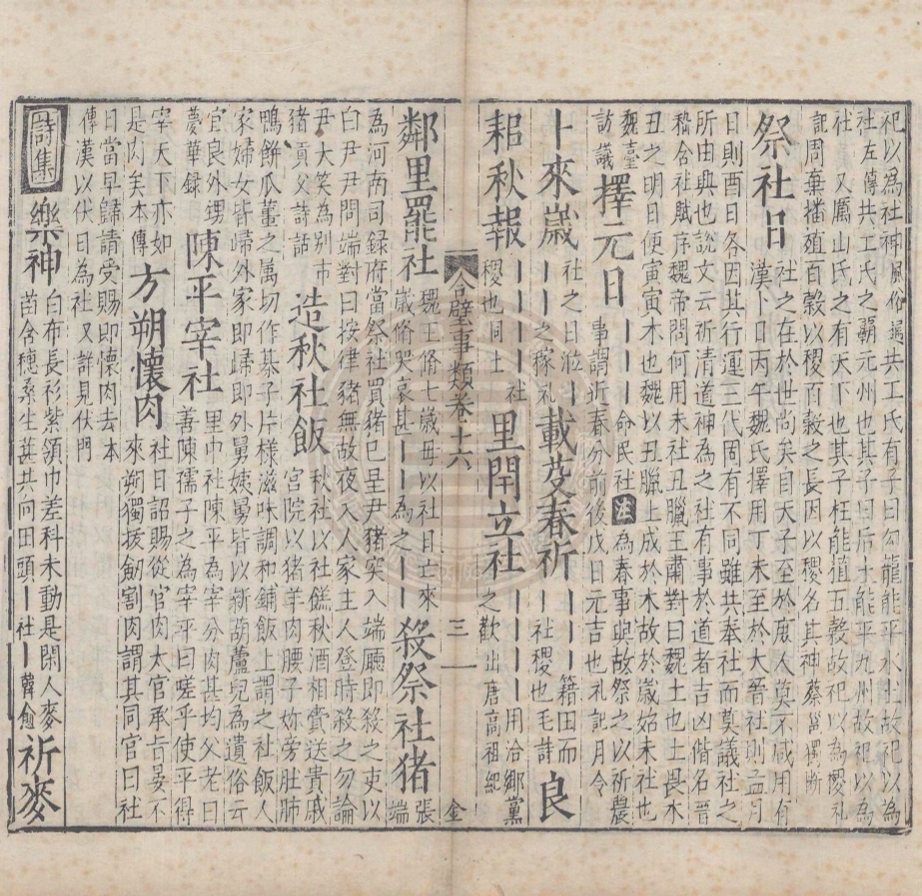 祀以為社神風俗通共工氏有子曰勾龍能平水土故祀以為
社左傳共工氏之霸九州也其子曰后土能平九州故祀以為
社又厲山氏之有天下也其子柱能植五穀故祀以為稷礼
記周棄播殖百穀以稷百穀之長因以稷名其神蔡邕獨斷
祭社日社之在於世尚矣自天子至於庶人莫不咸用有
漢卜日丙午魏氏擇用丁未至於大晉社則孟月
日則酉日各因其行運三代固有不同雖共奉社而莫議社之
所由興也說文云祈清道神為之社有事於道者吉凶偕名晉
嵇含社賦序魏帝問何用未社丑臘王肅對曰魏土也土畏木
丑之明日便寅寅木也魏以丑臘土成於木故於歲始未社也
魏臺訪議擇元日丨丨丨命民社注為春事興故祭之以祈農
事謂近春分前後戊日元吉也礼記月令
卜來歲社之日涖丨丨丨之稼礼載芟春祈丨丨丨籍田而丨社稷也毛詩良
耜秋報丨丨丨丨社稷也同上里閈立社丨丨丨丨用洽鄉黨之歡出唐高祖紀
合璧事類卷十六 三 金
鄰里罷社魏王脩七歲母以社日亡來歲脩哭哀甚丨丨為之丨丨殺祭社猪張端
為河南司録府當祭社買猪已呈尹猪突入端廳即殺之吏以
白尹尹問端對曰按律猪無故夜入人家主人登時殺之勿論
尹大笑為別市猪貢父詩話造秋社飯秋社以社餻秋酒相賫送貴戚
宮院以猪羊肉腰子妳旁肚肺
鴨餅瓜薑之属切作棊子片樣滋味調和鋪飯上謂之社飯人
家婦女皆歸外家即歸即外舅姨舅皆以新葫蘆兒為遺俗云
宜良外甥夢華録陳平宰社里中社陳平為宰分肉甚均父老曰
善陳孺子之為宰平曰嗟乎使平得
宰天下亦如是肉矣本傳方朔懷肉社日詔賜從官肉太官承旨晏不
來朔獨拔劍割肉謂其同官曰社
日當早歸請受賜即懷肉去本
傳漢以伏日為社又詳見伏門
詩集樂神白布長衫紫領巾差科未動是閑人麥
苗含穗桑生葚共向田頭丨社丨韓愈祈麥